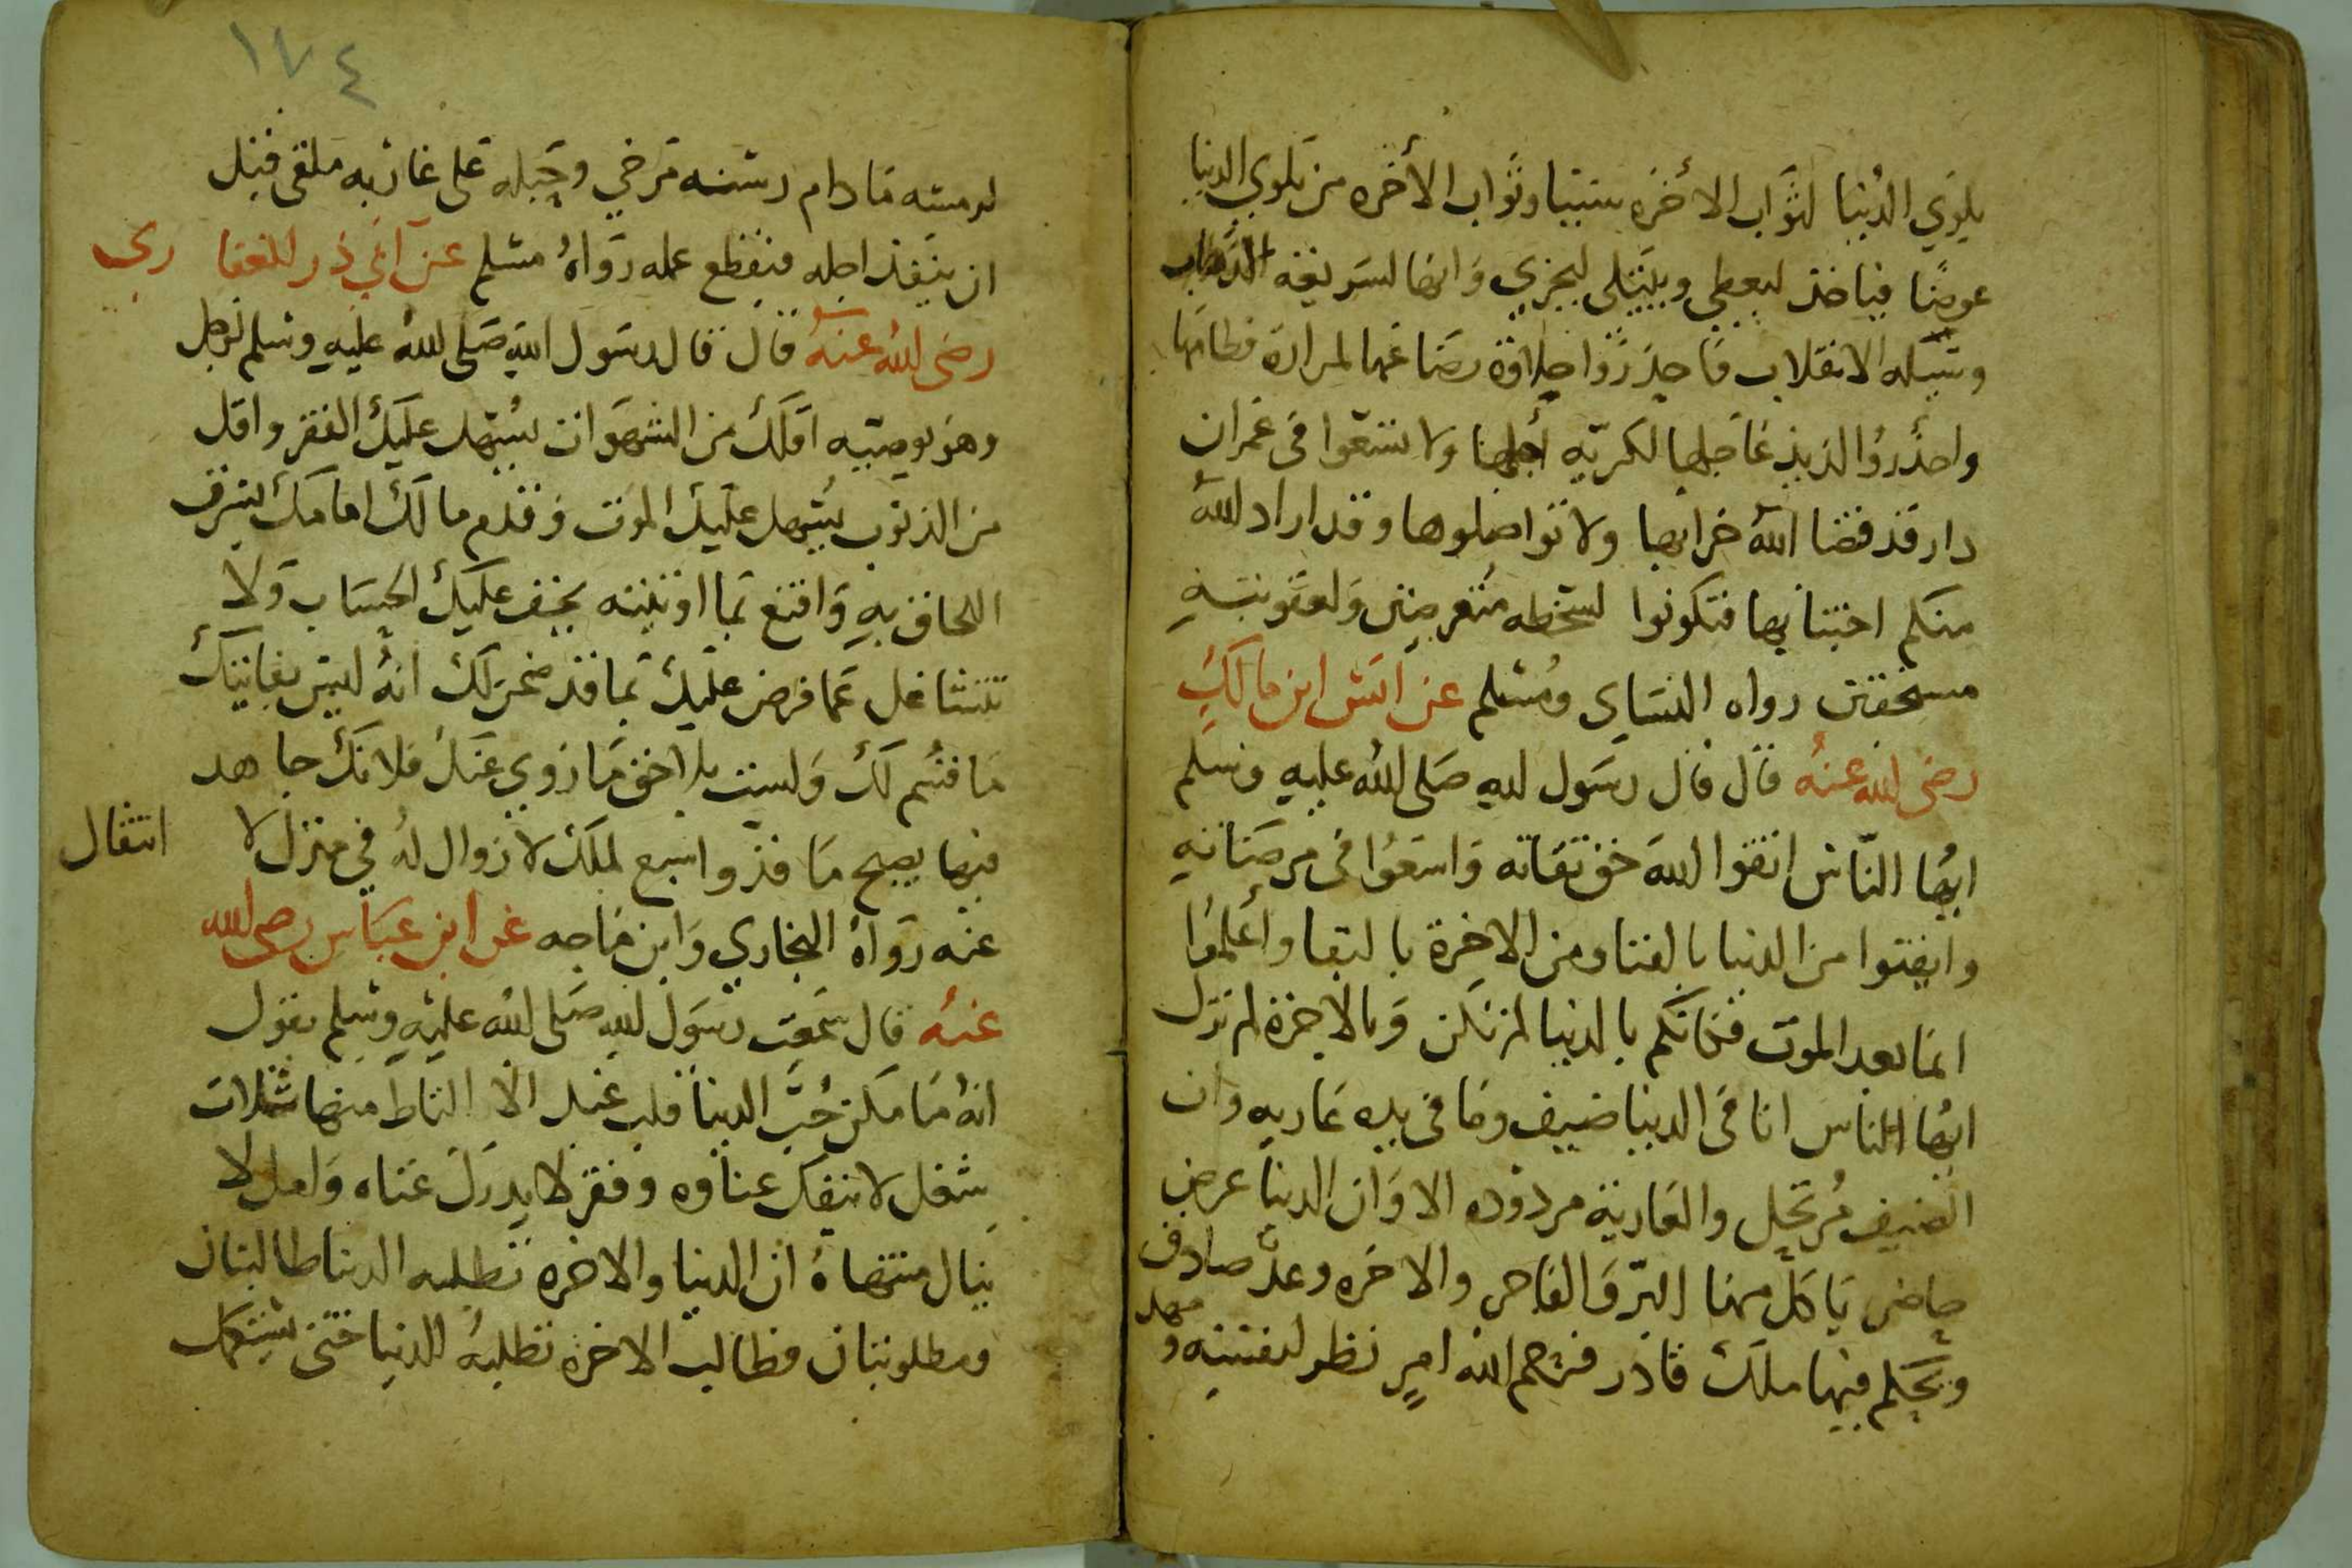 بلوي الدنيا لثواب الاخره سببا وثواب الأخره من بلوي الدنيا
عوضًا فياخذ ليعطي ويبتلى ليجزي وانها لسريعة الذهاب
وشيكه الانقلاب فاحذروا حلاوة رضاعها لمرارة فطامها
واحذروا لذيذ عاجلها لكريه أجلها ولا تسعوا فى عمران
دار قد قضا الله خرابها ولا تواصلوها وقد اراد الله
منكم اجتنابها فتكونوا لسخطه متعرضين ولعقوبته
مستحقين رواه النساى ومسلم عن انس ابن مالك
رضى الله عنه قال قال رسول الله صلى الله عليه وسلم
ايها الناس اتقوا الله حق تقاته واسعوا فى مرضاته
وايقنوا من الدنيا بالفنا ومن الاخرة بالبقا وأعلموا
لما بعد الموت فكانكم بالدنيا لم تكن وبالاخرة لم تزل
ايها الناس انا فى الدنيا ضيف وما فى يده عاريه وان
الضيف مرتحل والعارية مردوده الا وان الدنيا عرض
حاضر ياكل منها البر والفاجر والاخره وعد صادق
ويحكم فيها ملك قادر فرحم الله امرٍ نظر لنفسه و مهد
١٧٤
لرمسه مادام رسنه مرخي وحبله على غاربه ملقى قبل
ان ينفذ اجله فينقطع عمله رواه مسلم عن ابي ذر الغفا ري
رضى الله عنه قال قال رسول الله صلى الله عليه وسلم لرجل
وهو يوصيه اقلل من الشهوات يسهل عليك الفقر واقل
من الذنوب يسهل عليك الموت وقدم مالك امامك يسرك
اللحاق به واقنع بما اوتيته يخف عليك الحساب ولا
تتشاغل عما فرض عليك بما قد ضمن لك انه ليس بفايتك
ما قسم لك ولست بلاحق ما زوي عنك فلا تك جاهد
فيها يصبح نافذ واسع لملك لا زوال له في منزل لا انتقال
عنه رواه البخاري وابن ماجه عن ابن عباس رضى الله
عنه قال سمعت رسول الله صلى الله عليه وسلم يقول
انه ما سكن حب الدنيا قلب عبد الا التاط منها بثلاث
شغل لا ينفك عناوه وفقر لا يدرك غناه وامل لا
ينال منتهاه ان الدنيا والاخره تطلبه الدنيا طالبتان
ومطلوبتان فطالب الاخره تطلبه الدنيا حتى يستكمل